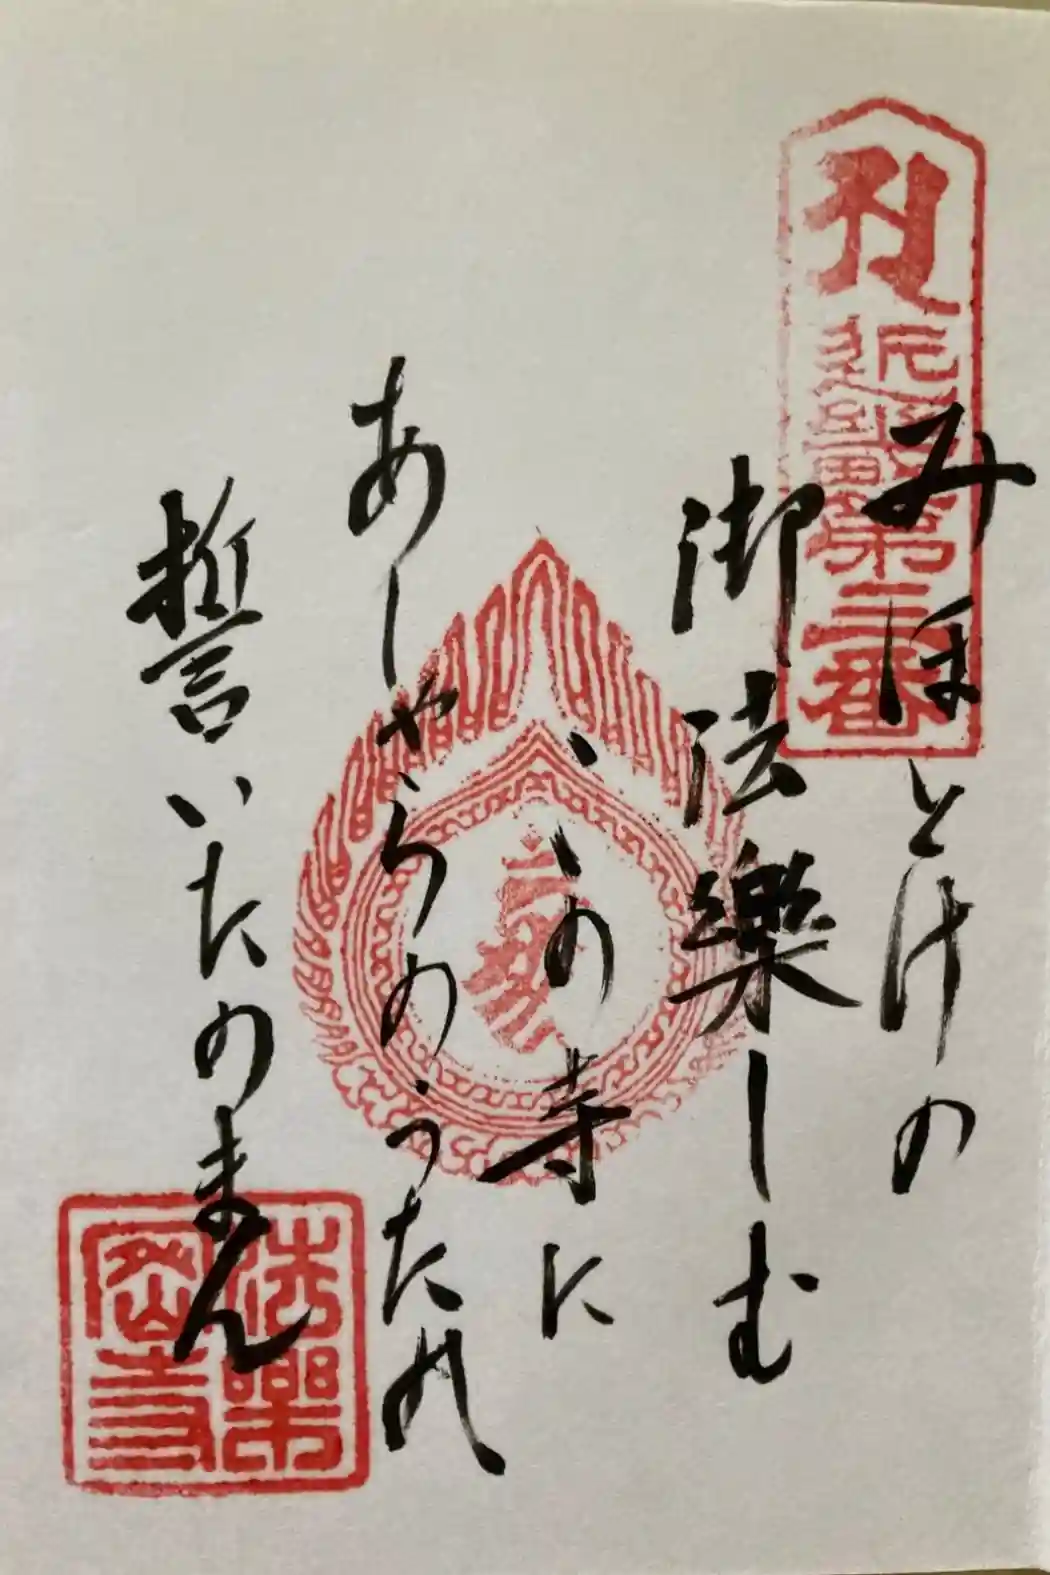 近畿第三番
みほとけの
御法樂しむ
こゝの寺に
あしゃらのうたれ
誓いたのまん
法樂寺